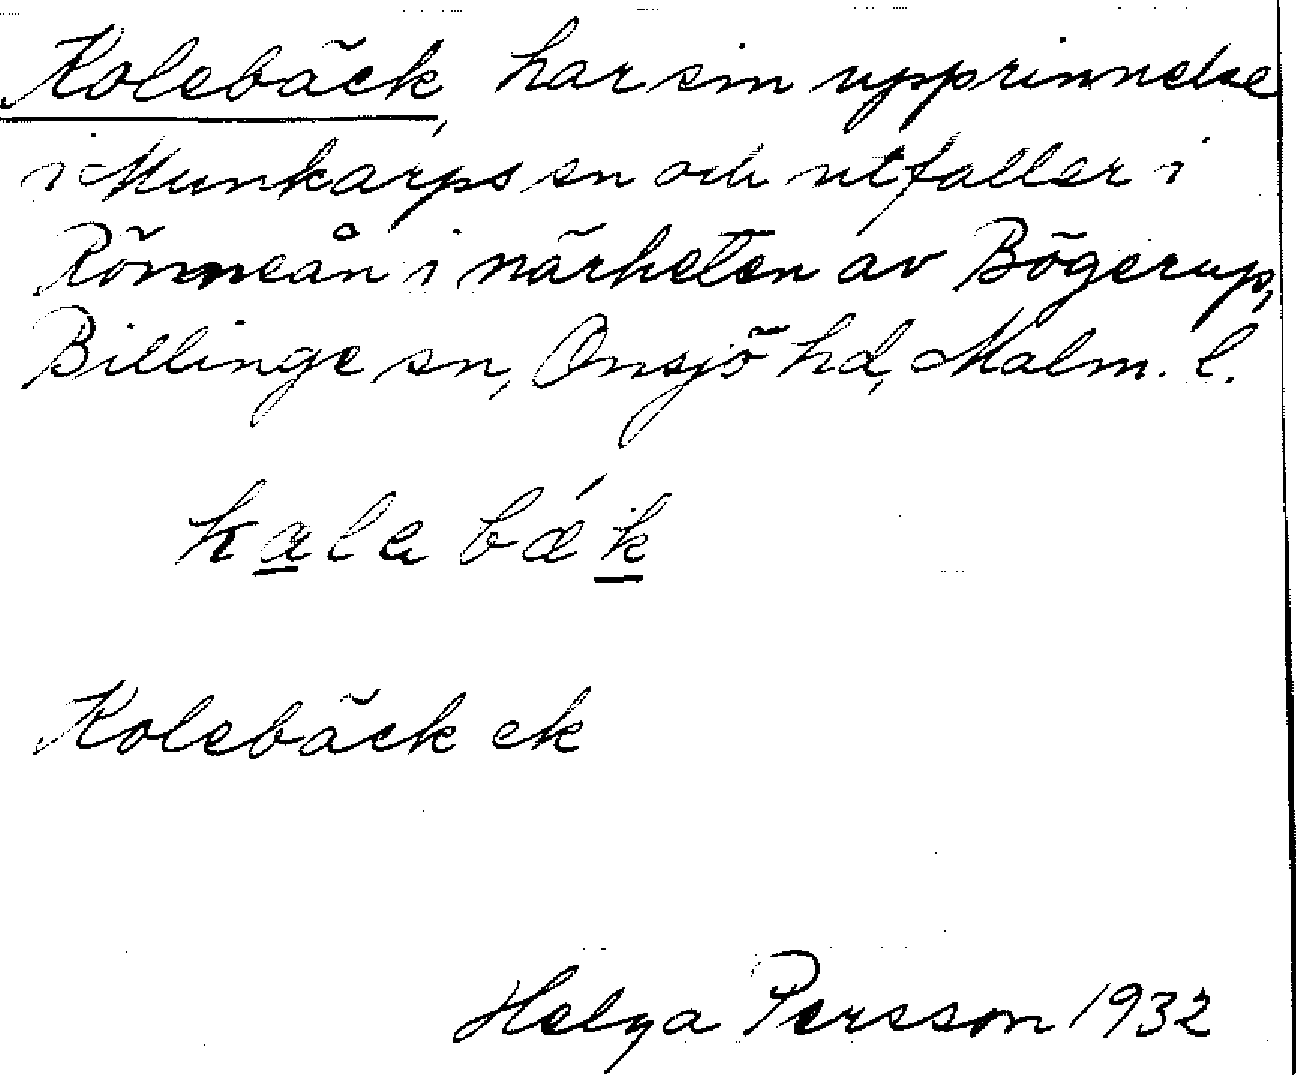 Kolebäck, har sin upprinnelse
i Munkarps sn och utfaller i
Rönneån i närheten av Bögerup,
Billinge sn, Onsjö hd, Malm. l.
kalabǽk
Kolebäck ek
Helga Persson 1932